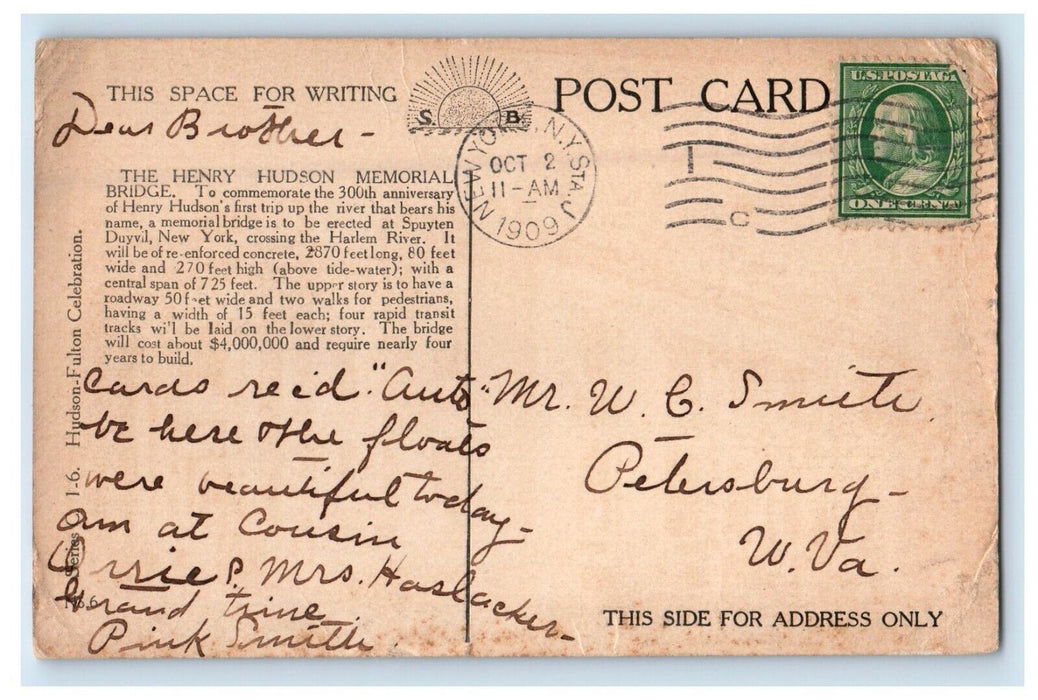 THIS SPACE FOR WRITING
S. B.
POST CARD
U.S. POSTAGE
ONE CENT
NEW YORK, N.Y. STA. J
OCT 2
11-AM
1909
C
Dear Brother-
THE HENRY HUDSON MEMORIAL
BRIDGE. To commemorate the 300th anniversary
of Henry Hudson's first trip up the river that bears his
name, a memorial bridge is to be erected at Spuyten
Duyvil, New York, crossing the Harlem River. It
will be of re-enforced concrete, 2870 feet long, 80 feet
wide and 270 feet high (above tide-water); with a
central span of 725 feet. The upper story is to have a
roadway 50 feet wide and two walks for pedestrians,
having a width of 15 feet each; four rapid transit
tracks will be laid on the lower story. The bridge
will cost about $4,000,000 and require nearly four
years to build.
Series 1-6. Hudson-Fulton Celebration.
cards rec'd. "Auto"
be here & the floats
were beautiful today-
am at Cousin
& Mrs. Haslacker-
Grand time
Pink Smith.
Mr. W. C. Smith,
Petersburg-
W. Va.
THIS SIDE FOR ADDRESS ONLY